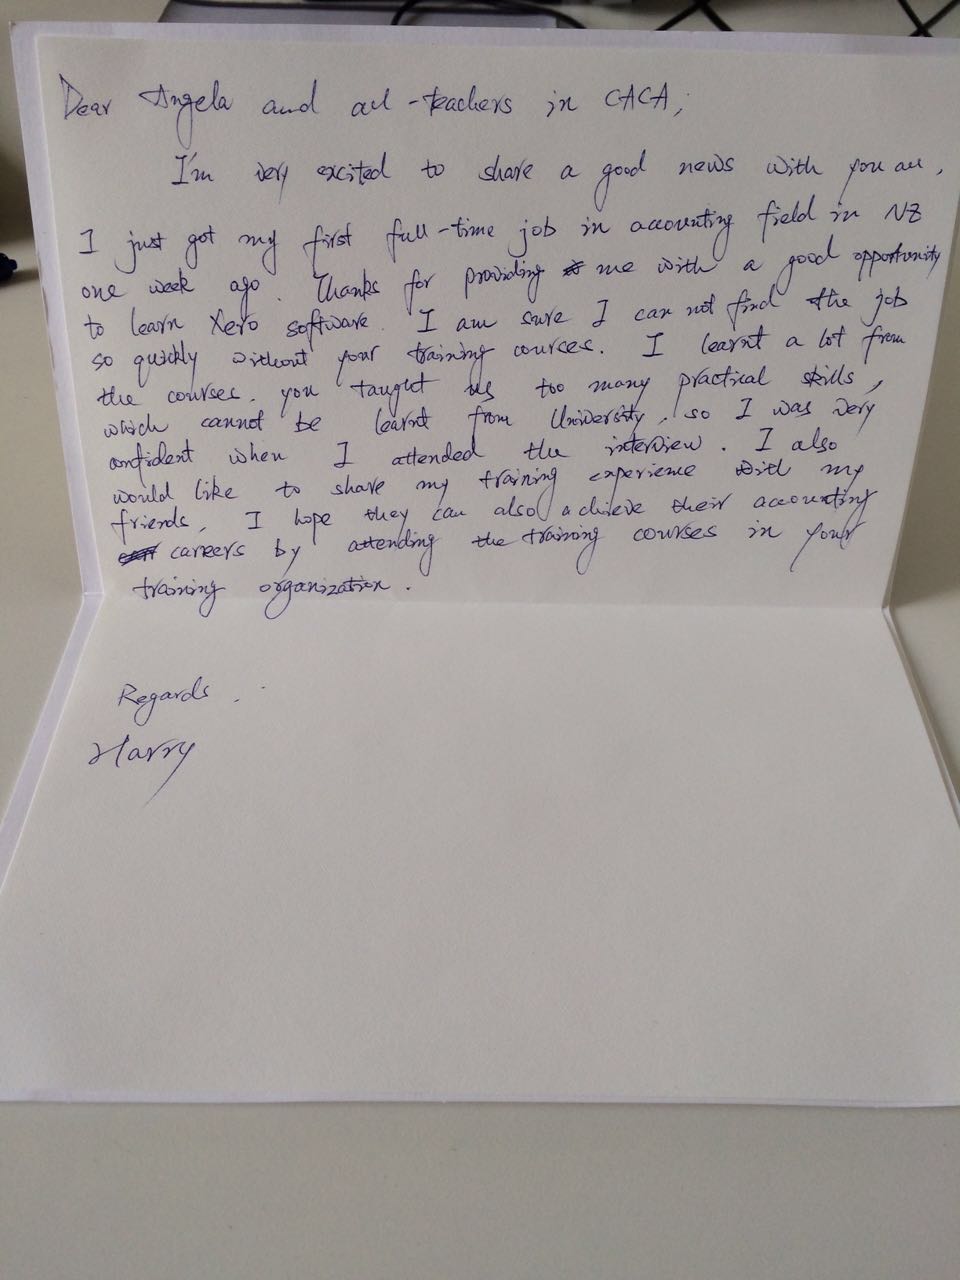 Dear Angela and all teachers in CACA,
I'm very excited to share a good news with you all,
I just got my first full-time job in accounting field in NZ
one week ago. Thanks for providing me with a good opportunity
to learn Xero software. I am sure I can not find the job
so quickly without your training courses. I learnt a lot from
the courses. you taught us too many practical skills,
which cannot be learnt from University, so I was very
confident when I attended the interview. I also
would like to share my training experience with my
friends, I hope they can also achieve their accounting
careers by attending the training courses in your
training organization.
Regards.
Harry